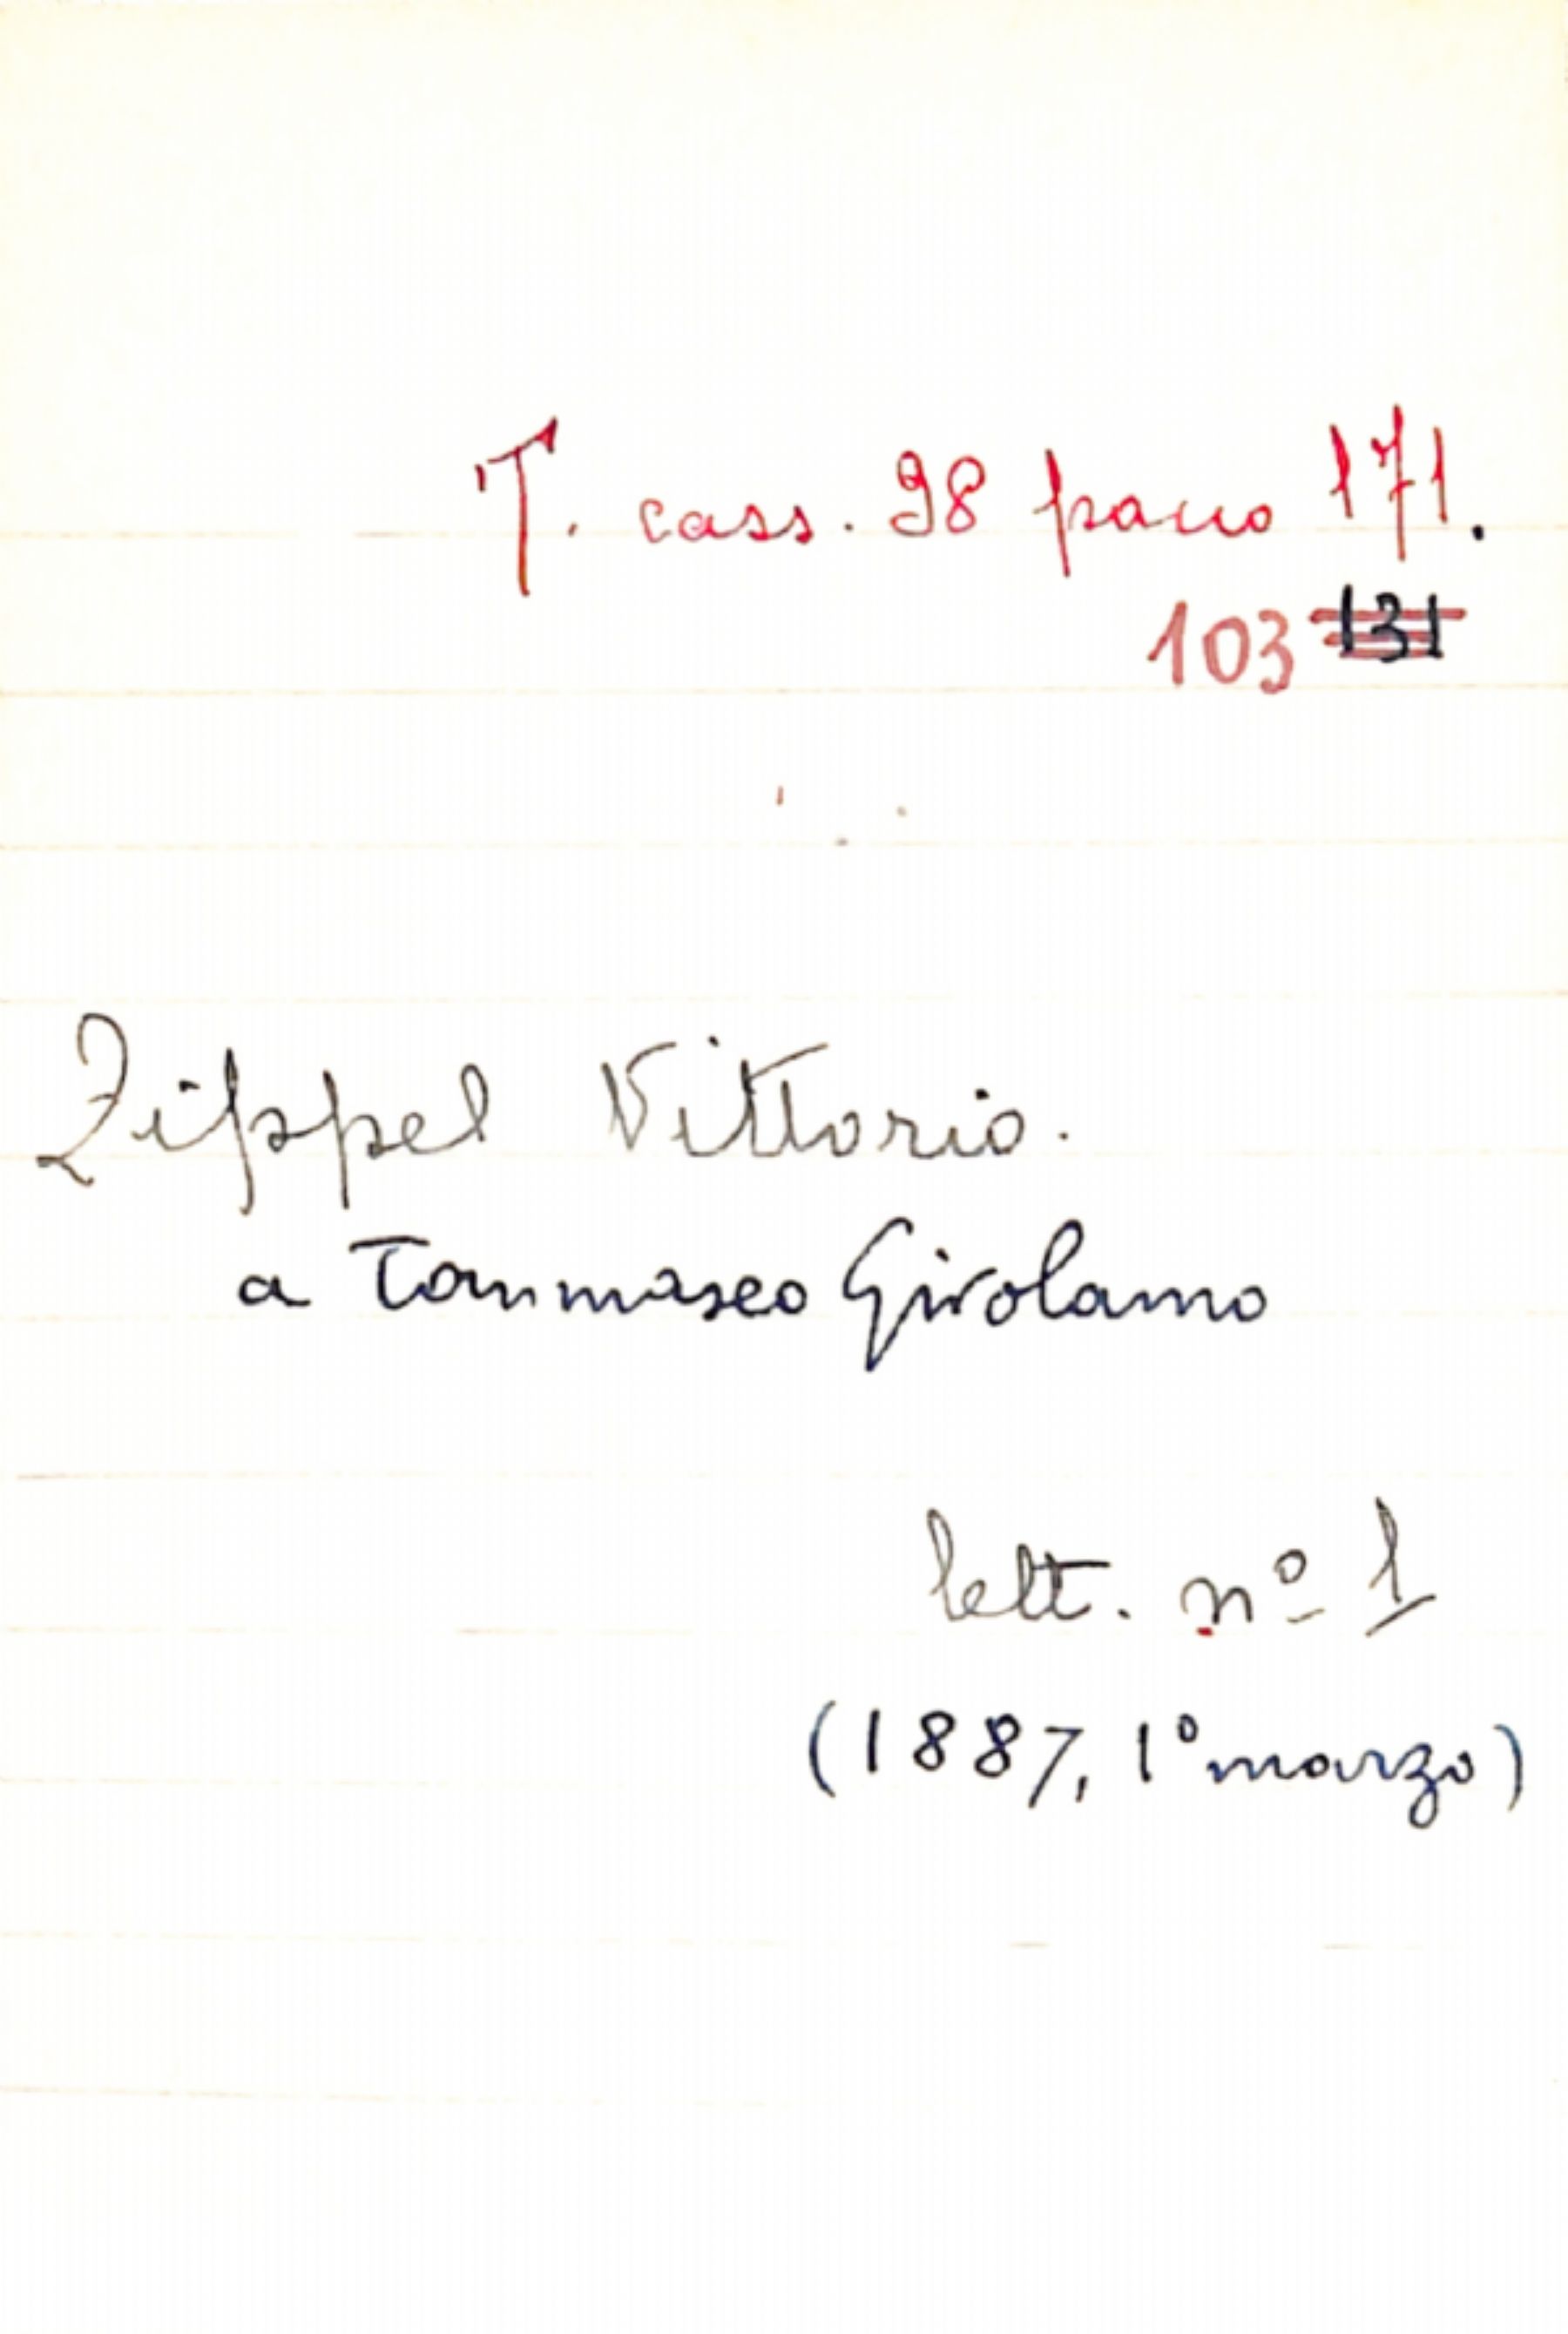 T. cass. 98 pacco 171.
103 131
Zippel Vittorio.
a Tommaseo Girolamo
lett. nº 1
(1887, 1º marzo)